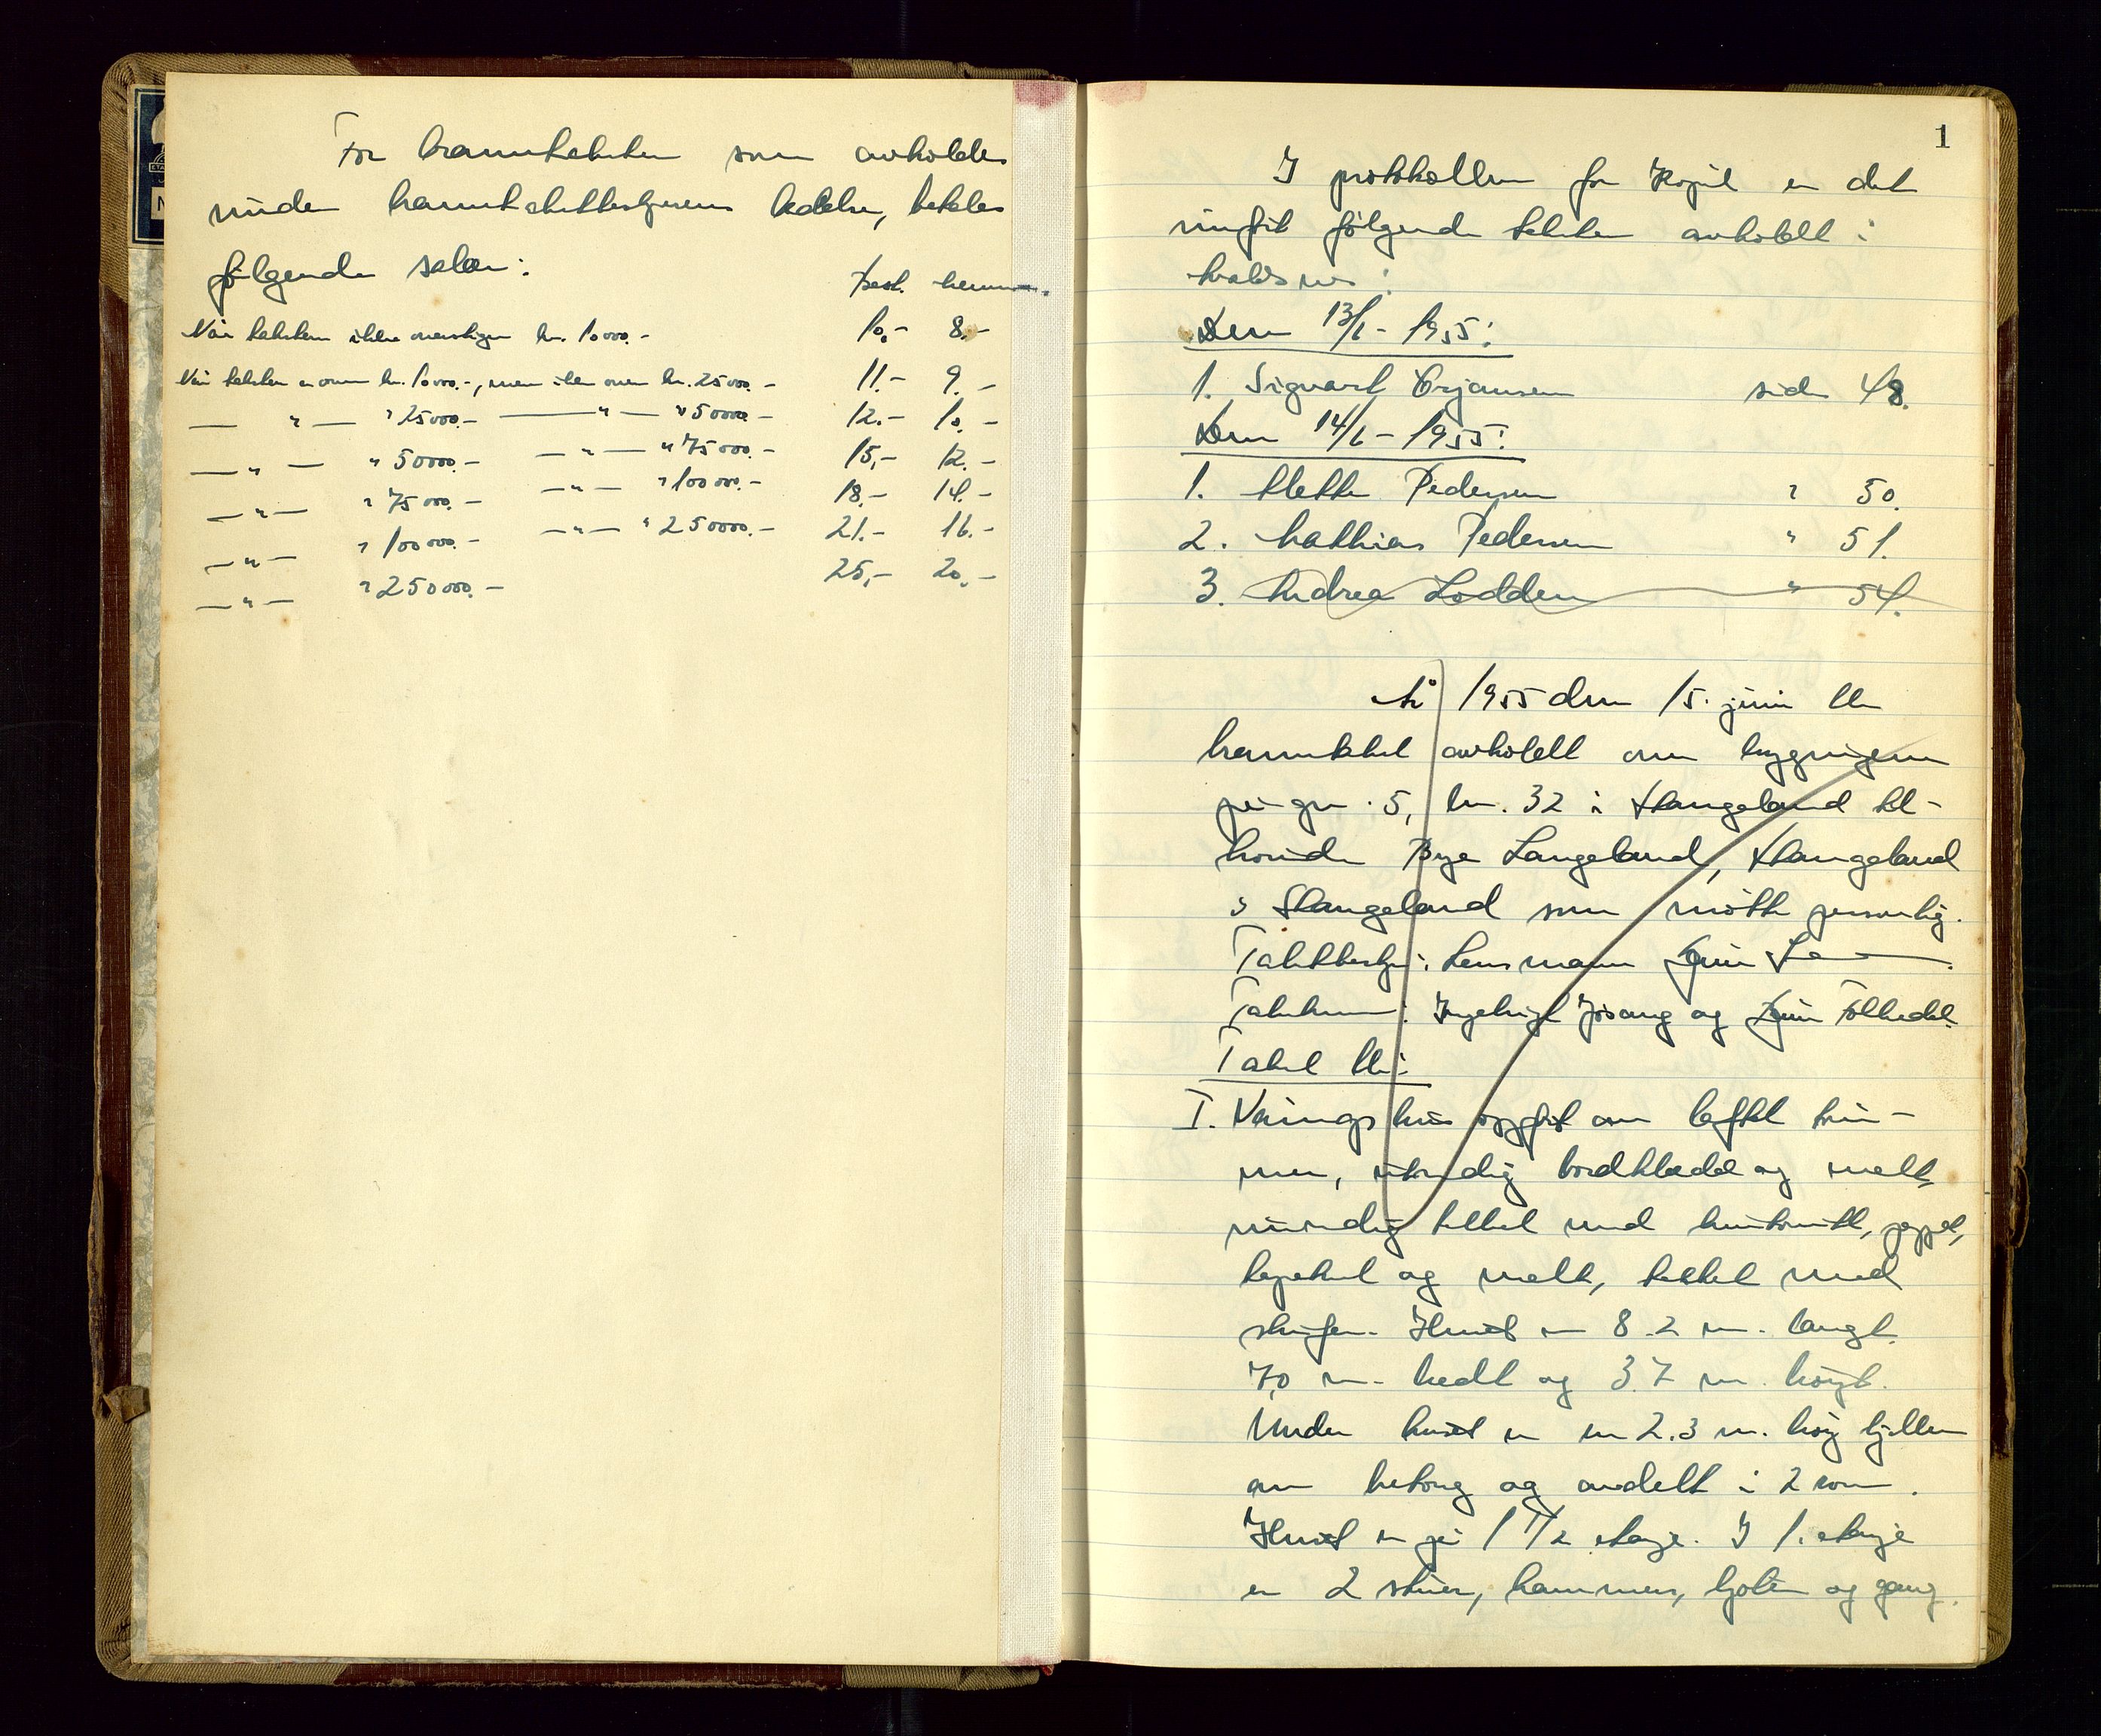 For branntaksten som avholdes
under branntakstbestyrerens ledelse, betales
følgende salær:
Best. menn.
Når taksten ikke overstiger kr. 10000.- 10.- 8.-
Når taksten er over kr. 10000.-, men ikke over kr. 25000.- 11.- 9.-
— " — " 25000.- — " — " 50000.- 12.- 10.-
— " — " 50000.- — " — " 75000.- 15.- 12.-
— " — " 75000.- — " — " 100000.- 18.- 14.-
— " — " 100000.- — " — " 250000.- 21.- 16.-
— " — " 250000.- 25.- 20.-
1
I protokollen for er det
innført følgende takster avholdt i
:
Den 13/6 - 1955:
1. Sigvart Ørjansen side 48.
Den 14/6 - 1955:
1. Mette Pedersen " 50.
2. Mathias Pedersen " 51.
3. Andrea Lodden " 54.
År 1955 den 15. juni ble
branntakst avholdt over bygningene
på gnr. 5, bnr. 32 i Slangeland til-
hørende Langeland, Slangeland
Slangeland som møtte personlig.
Takstbestyrer: Lensmann
Takstmenn: Ingebrigt Jøsang og
Takst ble:
I. Våningshus oppført av laftet tøm-
mer, utvendig bordkledd og malt,
innvendig tekket med huntonitt, papp,
tapetsert og malt, tekket med
skifer. Huset er 8.2 m. langt.
7,0 m. bredt og 3.7 m. høyt.
Under huset er en 2.3 m. høy kjeller
av betong og avdelt i 2 rom.
Huset er på 1 1/2 etasje. I 1. etasje
er 2 stuer, kammers, kjøken og gang.